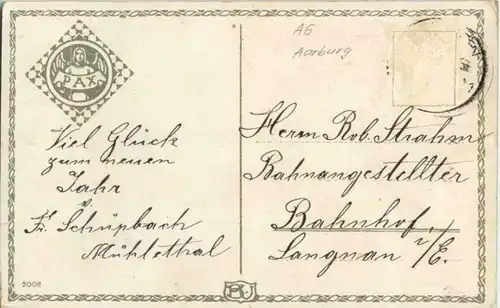 PAX
AG
Aarburg
Viel Glück
zum neuen
Jahr
v.
Fr. Schüpbach
Mühlethal
Herrn Rob. Strahm
Bahnangestellter
Bahnhof,
Langnau i/E.
2008